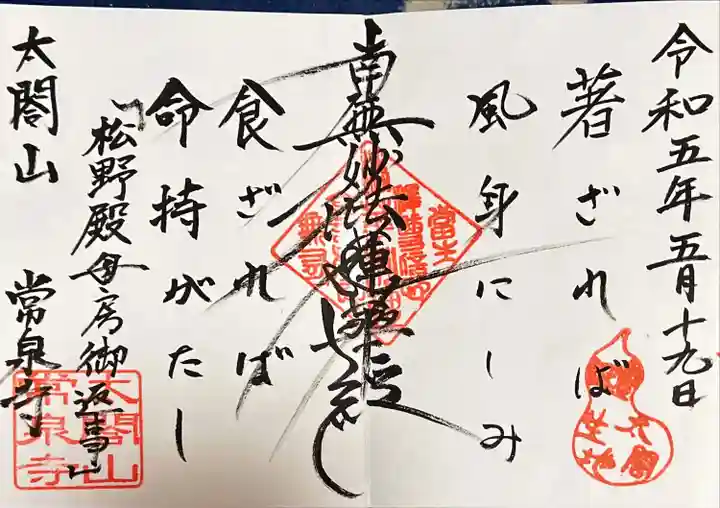 令和五年五月十九日
著ざれば
風身にしみ
南無妙法蓮華経
食ざれば
命持がたし
「松野殿女房御返事」
太閤山 常泉寺
太閤
生地
太閤山
常泉寺